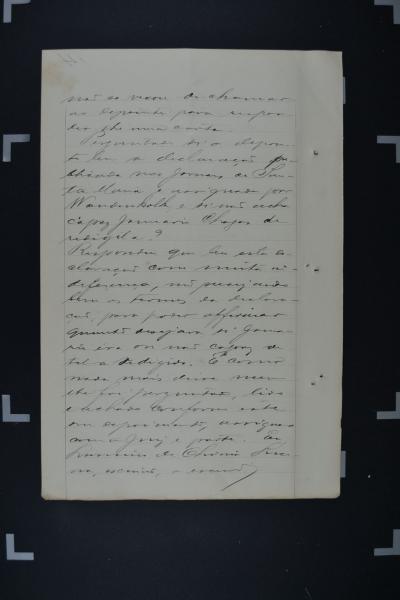 não se 				 de chamar
ao depoente para respon
der lhe uma carta.
Perguntado si o depoen-
te leu a declaração pu-
blicada nos jornaes de San-
ta Maria e assignada por
Wandenkolk e si não acha
capaz Januario Chagas de
redigil-a?
Respondeu que leu esta de
claração com muita in
differença, não
bem os termos da declara-
ção, para poder affirmar
quanto desejava si Janua-
rio era ou não capaz de
tel-a redigido. E como
nada mais disse nem
lhe foi perguntado, lido
e achado conforme este
seu depoimento, assigna
com o Juiz e parte. Eu,
Francisco de
escrivão, o escrevi